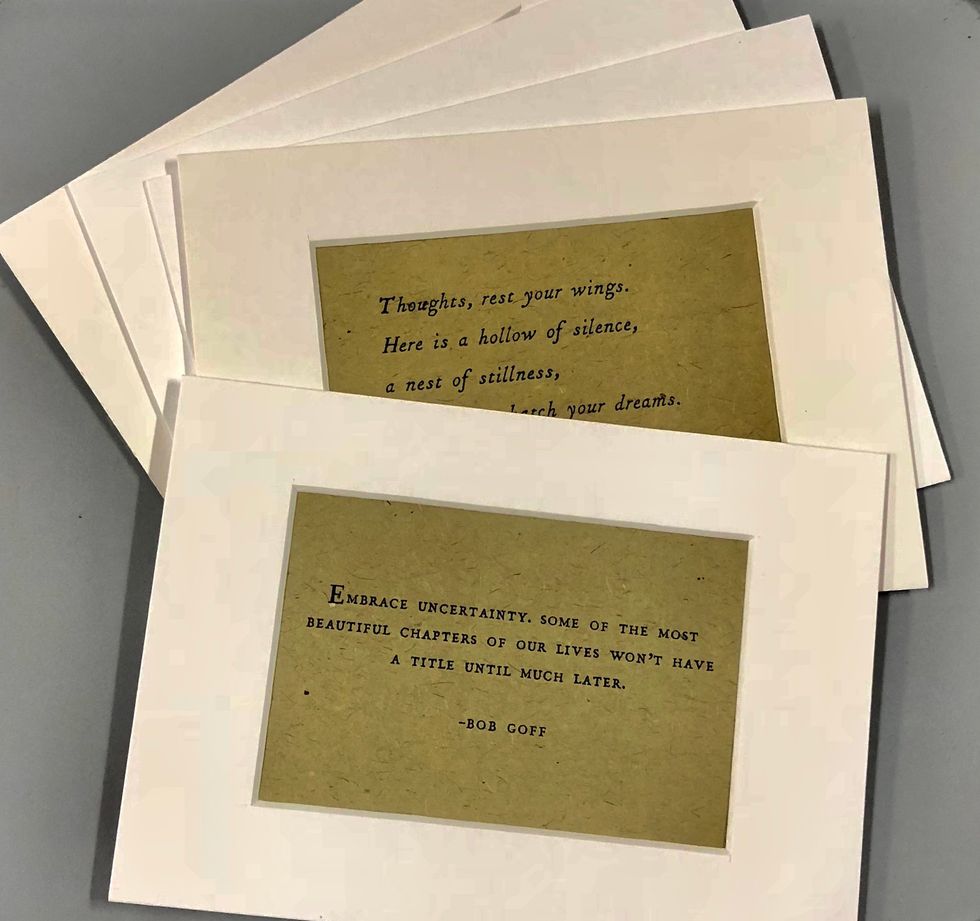 Thoughts, rest your wings.
Here is a hollow of silence,
a nest of stillness,
hatch your dreams.
EMBRACE UNCERTAINTY. SOME OF THE MOST
BEAUTIFUL CHAPTERS OF OUR LIVES WON'T HAVE
A TITLE UNTIL MUCH LATER.
-BOB GOFF